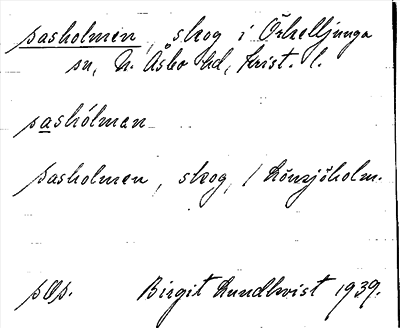 pasholmen, skog i Örkelljunga
sn, N. Åsbo hd, Krist. l.
pashólman
pasholmen, skog, / Lönsjöholm.
pOp. Birgit Lundkvist 1939.